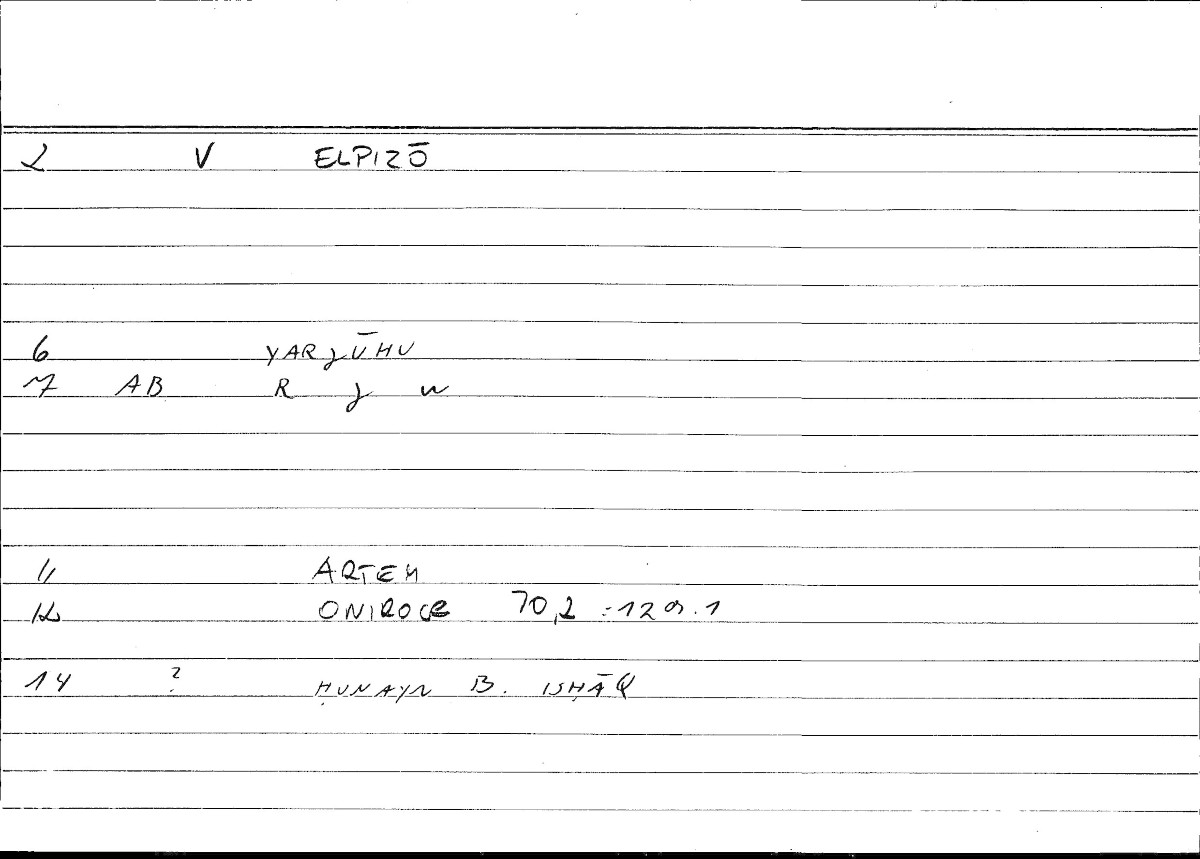 2 V ELPIZŌ
6 YARJŪHU
7 AB R J w
11 ARTEM
12 ONIROCR 70,2 = 129.1
14 ? ḤUNAYN B. ISḤĀQ